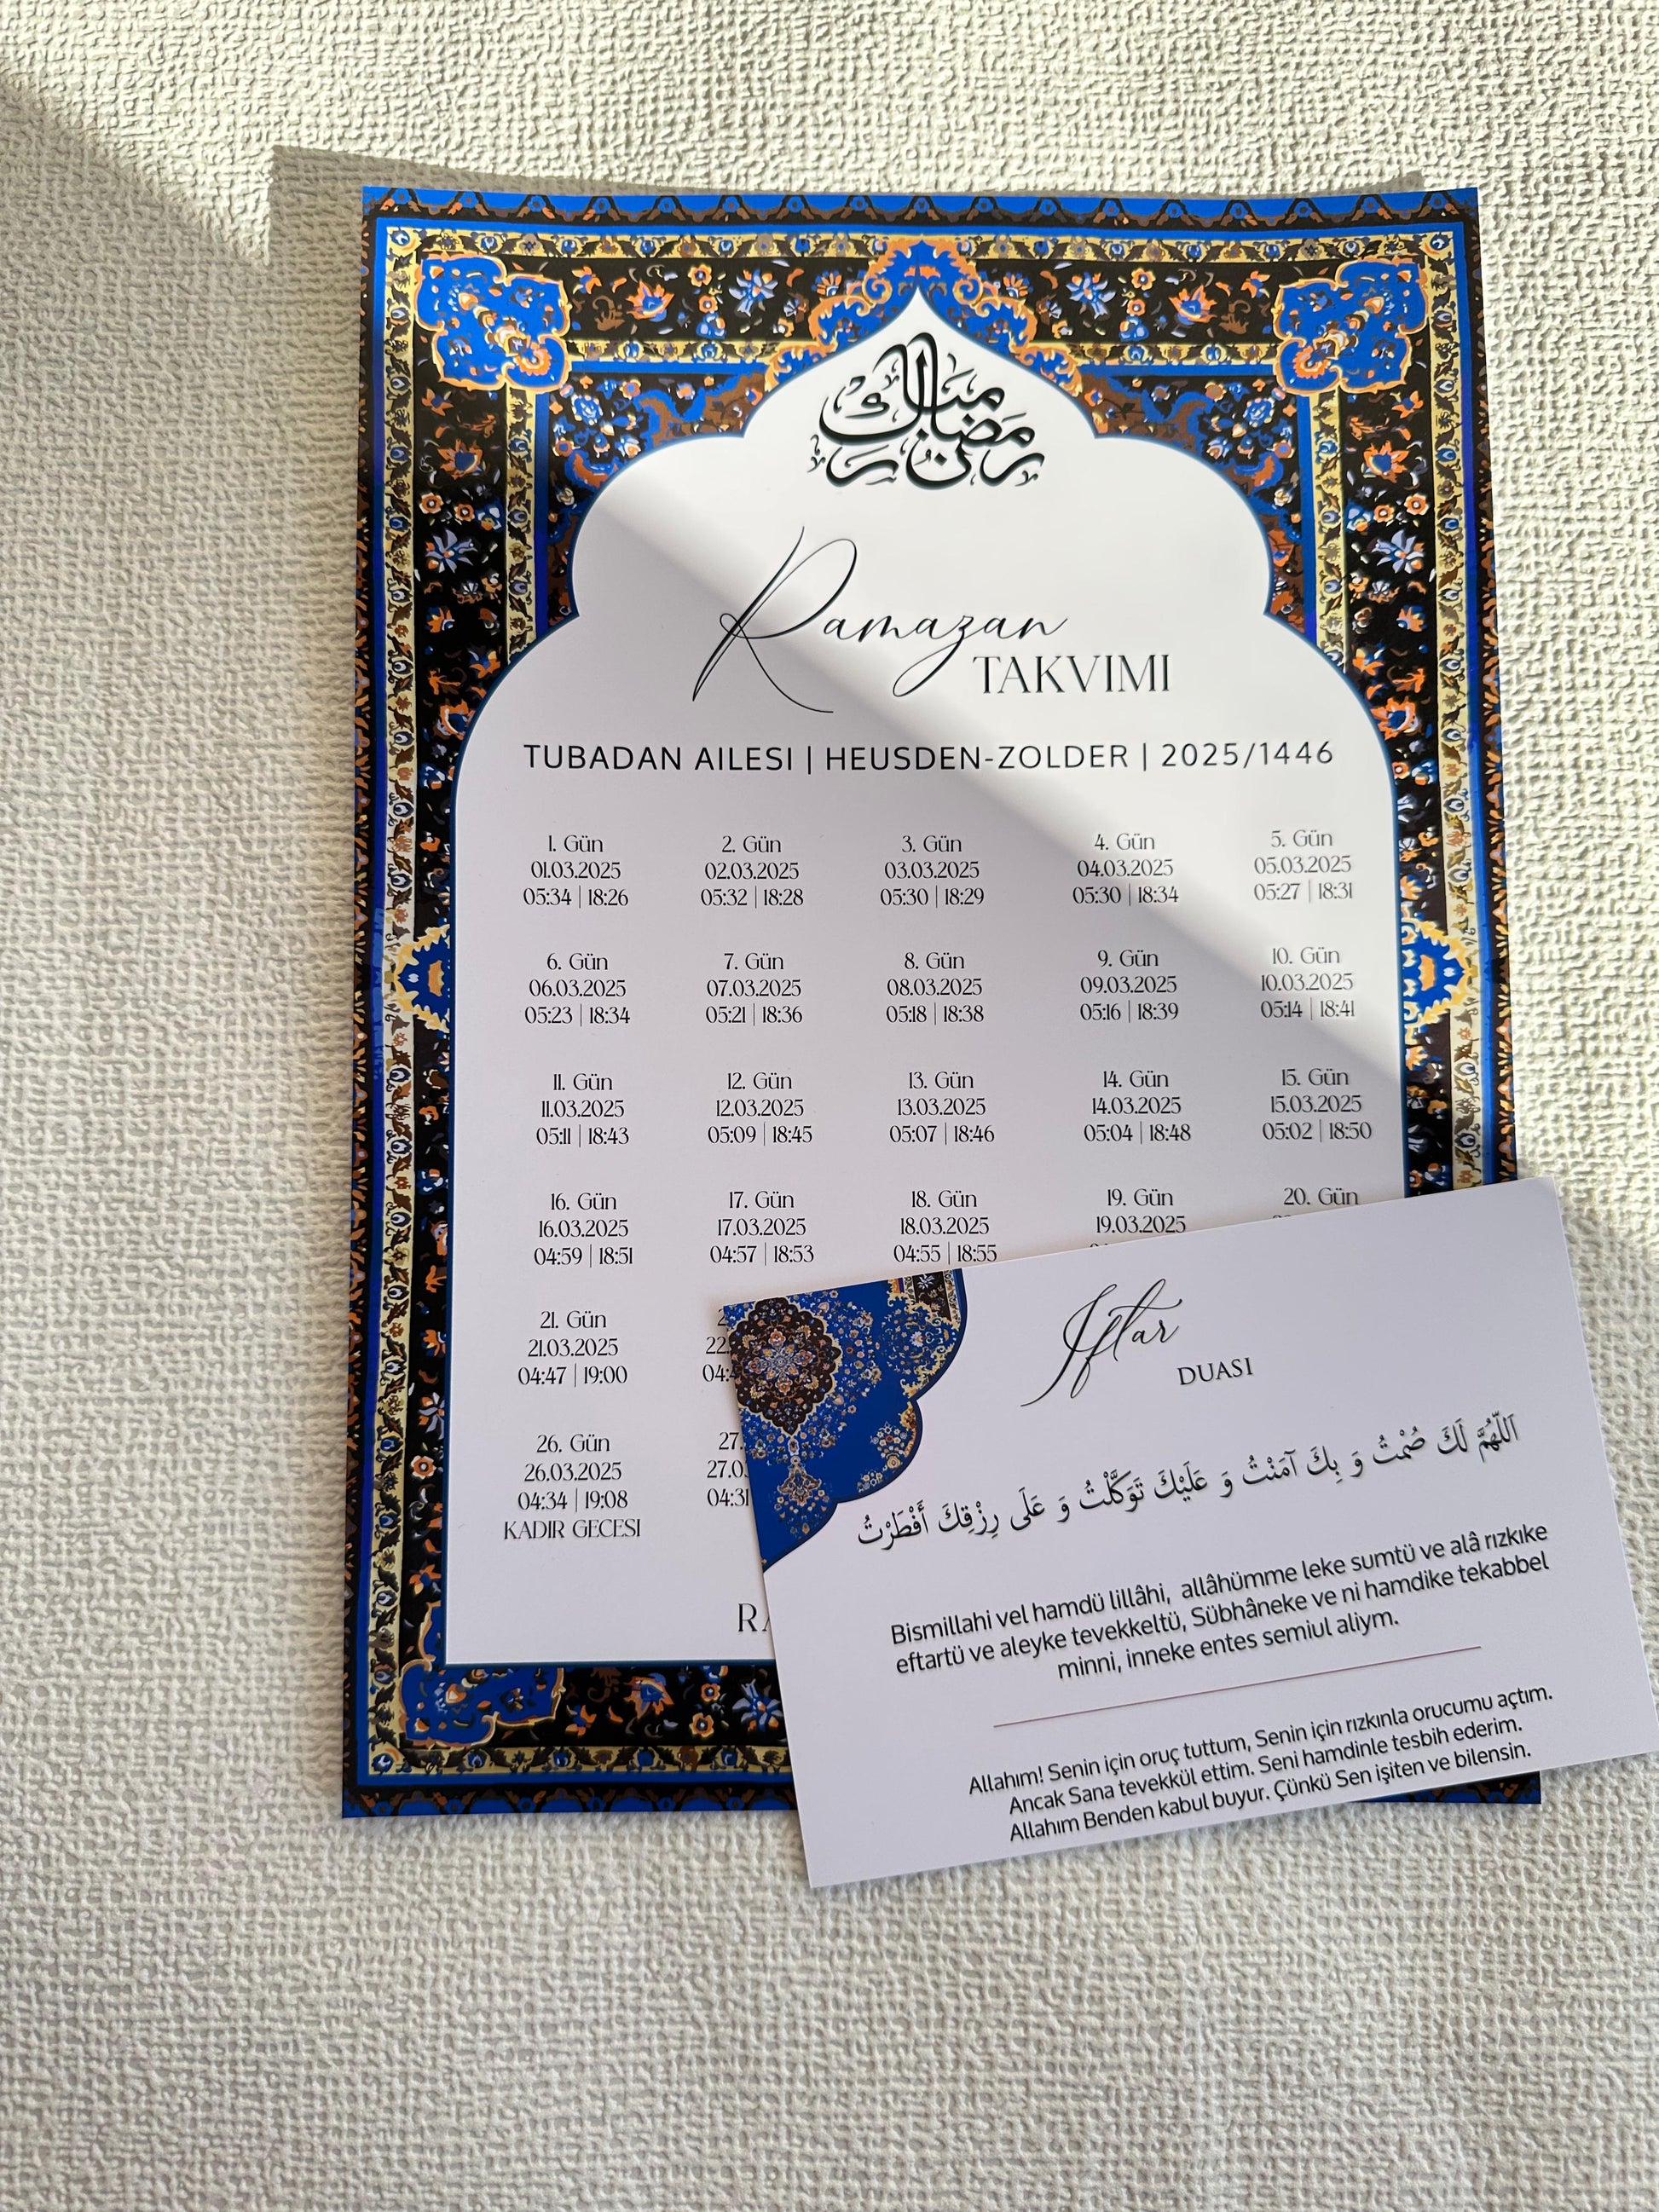 رمضان مبارك
Ramazan
TAKVIMI
TUBADAN AILESI | HEUSDEN-ZOLDER | 2025/1446
1. Gün 2. Gün 3. Gün 4. Gün 5. Gün
01.03.2025 02.03.2025 03.03.2025 04.03.2025 05.03.2025
05:34 | 18:26 05:32 | 18:28 05:30 | 18:29 05:30 | 18:34 05:27 | 18:31
6. Gün 7. Gün 8. Gün 9. Gün 10. Gün
06.03.2025 07.03.2025 08.03.2025 09.03.2025 10.03.2025
05:23 | 18:34 05:21 | 18:36 05:18 | 18:38 05:16 | 18:39 05:14 | 18:41
11. Gün 12. Gün 13. Gün 14. Gün 15. Gün
11.03.2025 12.03.2025 13.03.2025 14.03.2025 15.03.2025
05:11 | 18:43 05:09 | 18:45 05:07 | 18:46 05:04 | 18:48 05:02 | 18:50
16. Gün 17. Gün 18. Gün 19. Gün 20. Gün
16.03.2025 17.03.2025 18.03.2025 19.03.2025
04:59 | 18:51 04:57 | 18:53 04:55 | 18:55
21. Gün
21.03.2025 22.
04:47 | 19:00 04:4
26. Gün 27.
26.03.2025 27.0
04:34 | 19:08 04:31
KADIR GECESI
RA
Iftar
DUASI
اَللّٰهُمَّ لَكَ صُمْتُ وَ بِكَ آمَنْتُ وَ عَلَيْكَ تَوَكَّلْتُ وَ عَلَى رِزْقِكَ أَفْطَرْتُ
Bismillahi vel hamdü lillâhi, allâhümme leke sumtü ve alâ rızkıke
eftartü ve aleyke tevekkeltü, Sübhâneke ve ni hamdike tekabbel
minni, inneke entes semiul aliym.
Allahım! Senin için oruç tuttum, Senin için rızkınla orucumu açtım.
Ancak Sana tevekkül ettim. Seni hamdinle tesbih ederim.
Allahım Benden kabul buyur. Çünkü Sen işiten ve bilensin.